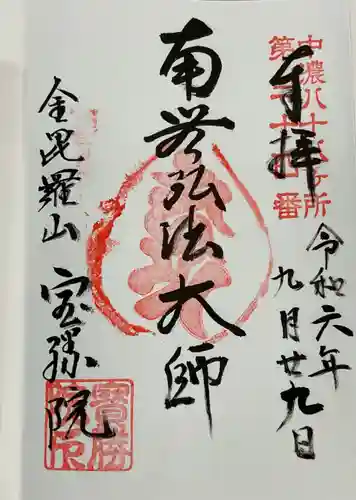 奉拝
中濃八十八ヶ所
第二十四番
令和六年
九月廿九日
南無弘法大師
金毘羅山
宝勝院